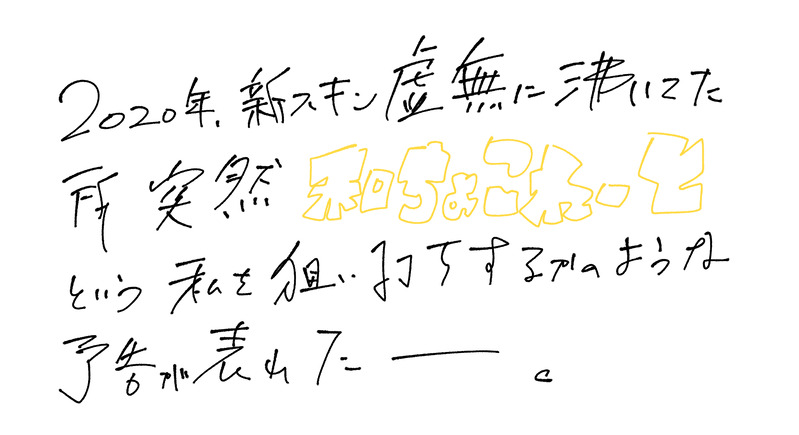 2020年、新スキン虚無に沸いてた
所 突然 和ちょこれーと
という 私を狙い打ちするかのような
予告が表れた――。